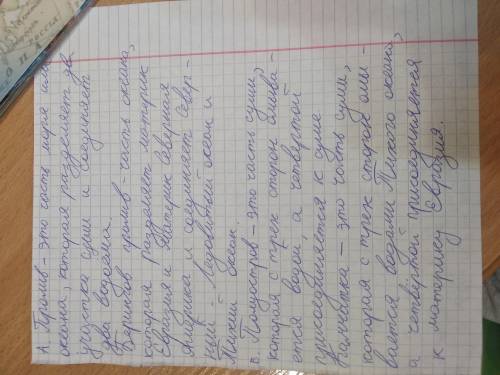 А. Пролив - это часть моря или
океана, которая разделяет два
участка суши и соединяет
два водоёма.
Берингов пролив - часть океана,
которая разделяет матрик
Евразия и матрик Северная
Америка и соединяет Север-
ный Ледовитый океан и
Тихий океан.
В. Полуостров - это часть суши,
которая с трех сторон омыва-
ется водой, а четвертой
присоединяется к суше
Камчатка - это часть суши,
которая с трех сторон омы-
вается водами Тихого океана,
а четвертой присоединяется
к материку Евразия.